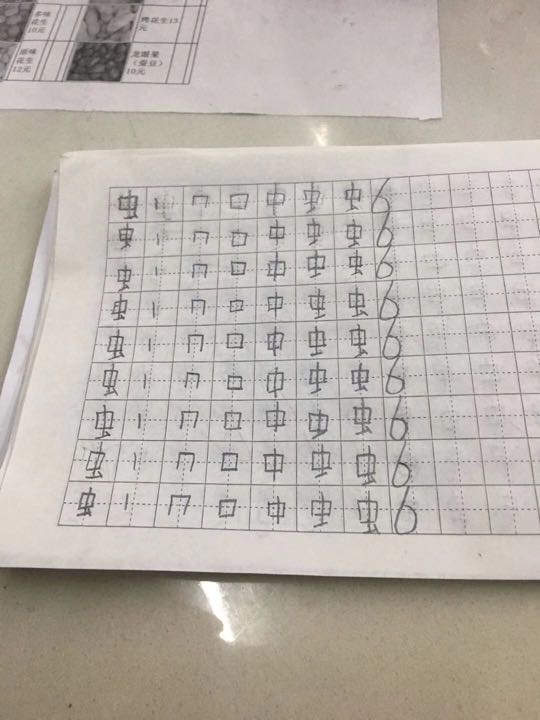 多味花生10元 烤花生13元
原味花生12元 龙眼果(蚕豆)10元
虫 丨 冂 口 中 虫 虫 6
虫 丨 冂 口 中 虫 虫 6
虫 丨 冂 口 中 虫 虫 6
虫 丨 冂 口 中 虫 虫 6
虫 丨 冂 口 中 虫 虫 6
虫 丨 冂 口 中 虫 虫 6
虫 丨 冂 口 中 虫 虫 6
虫 丨 冂 口 中 虫 虫 6
虫 丨 冂 口 中 虫 虫 6